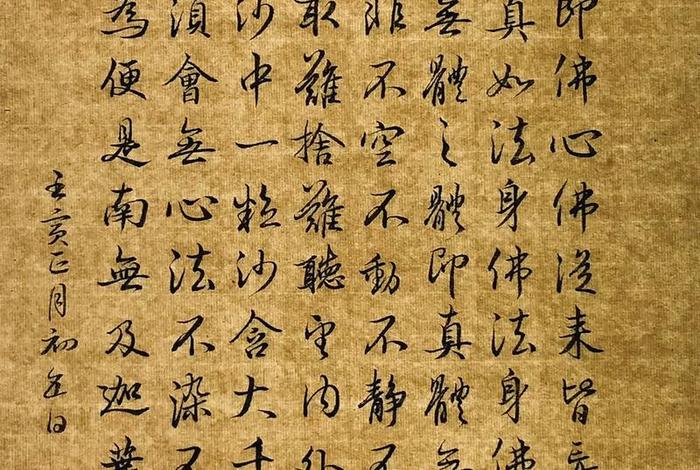 即佛心佛從來皆
真如法身佛法身佛
無體之體即真體無
非不空不動不靜不
取難捨難聽望內外
沙中一粒沙含大千
須會無心法不染不
為便是南無及迦葉
壬寅正月初五日